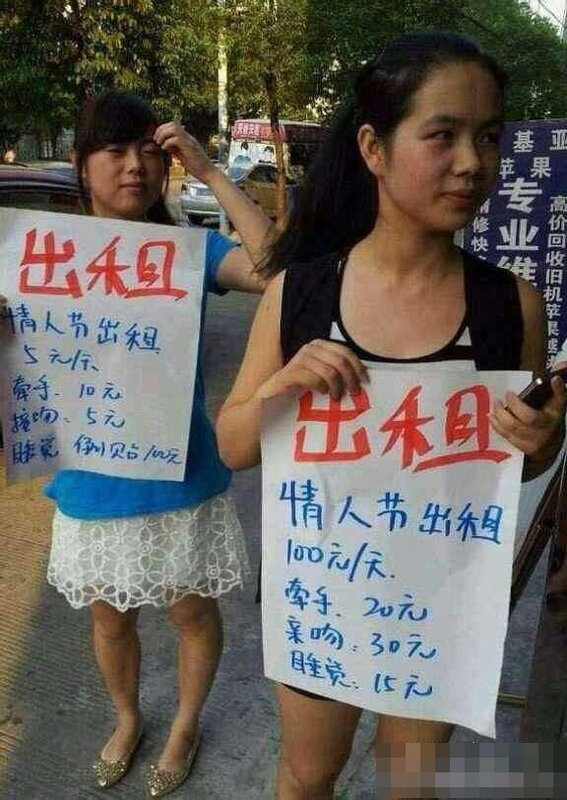 出租
情人节出租
5元/天
牵手、10元
接吻、5元
睡觉 倒贴100元
出租
情人节出租
100元/天.
牵手、20元
亲吻:30元
睡觉:15元
基 亚
苹果
专业维
修快
高价回收旧机苹果